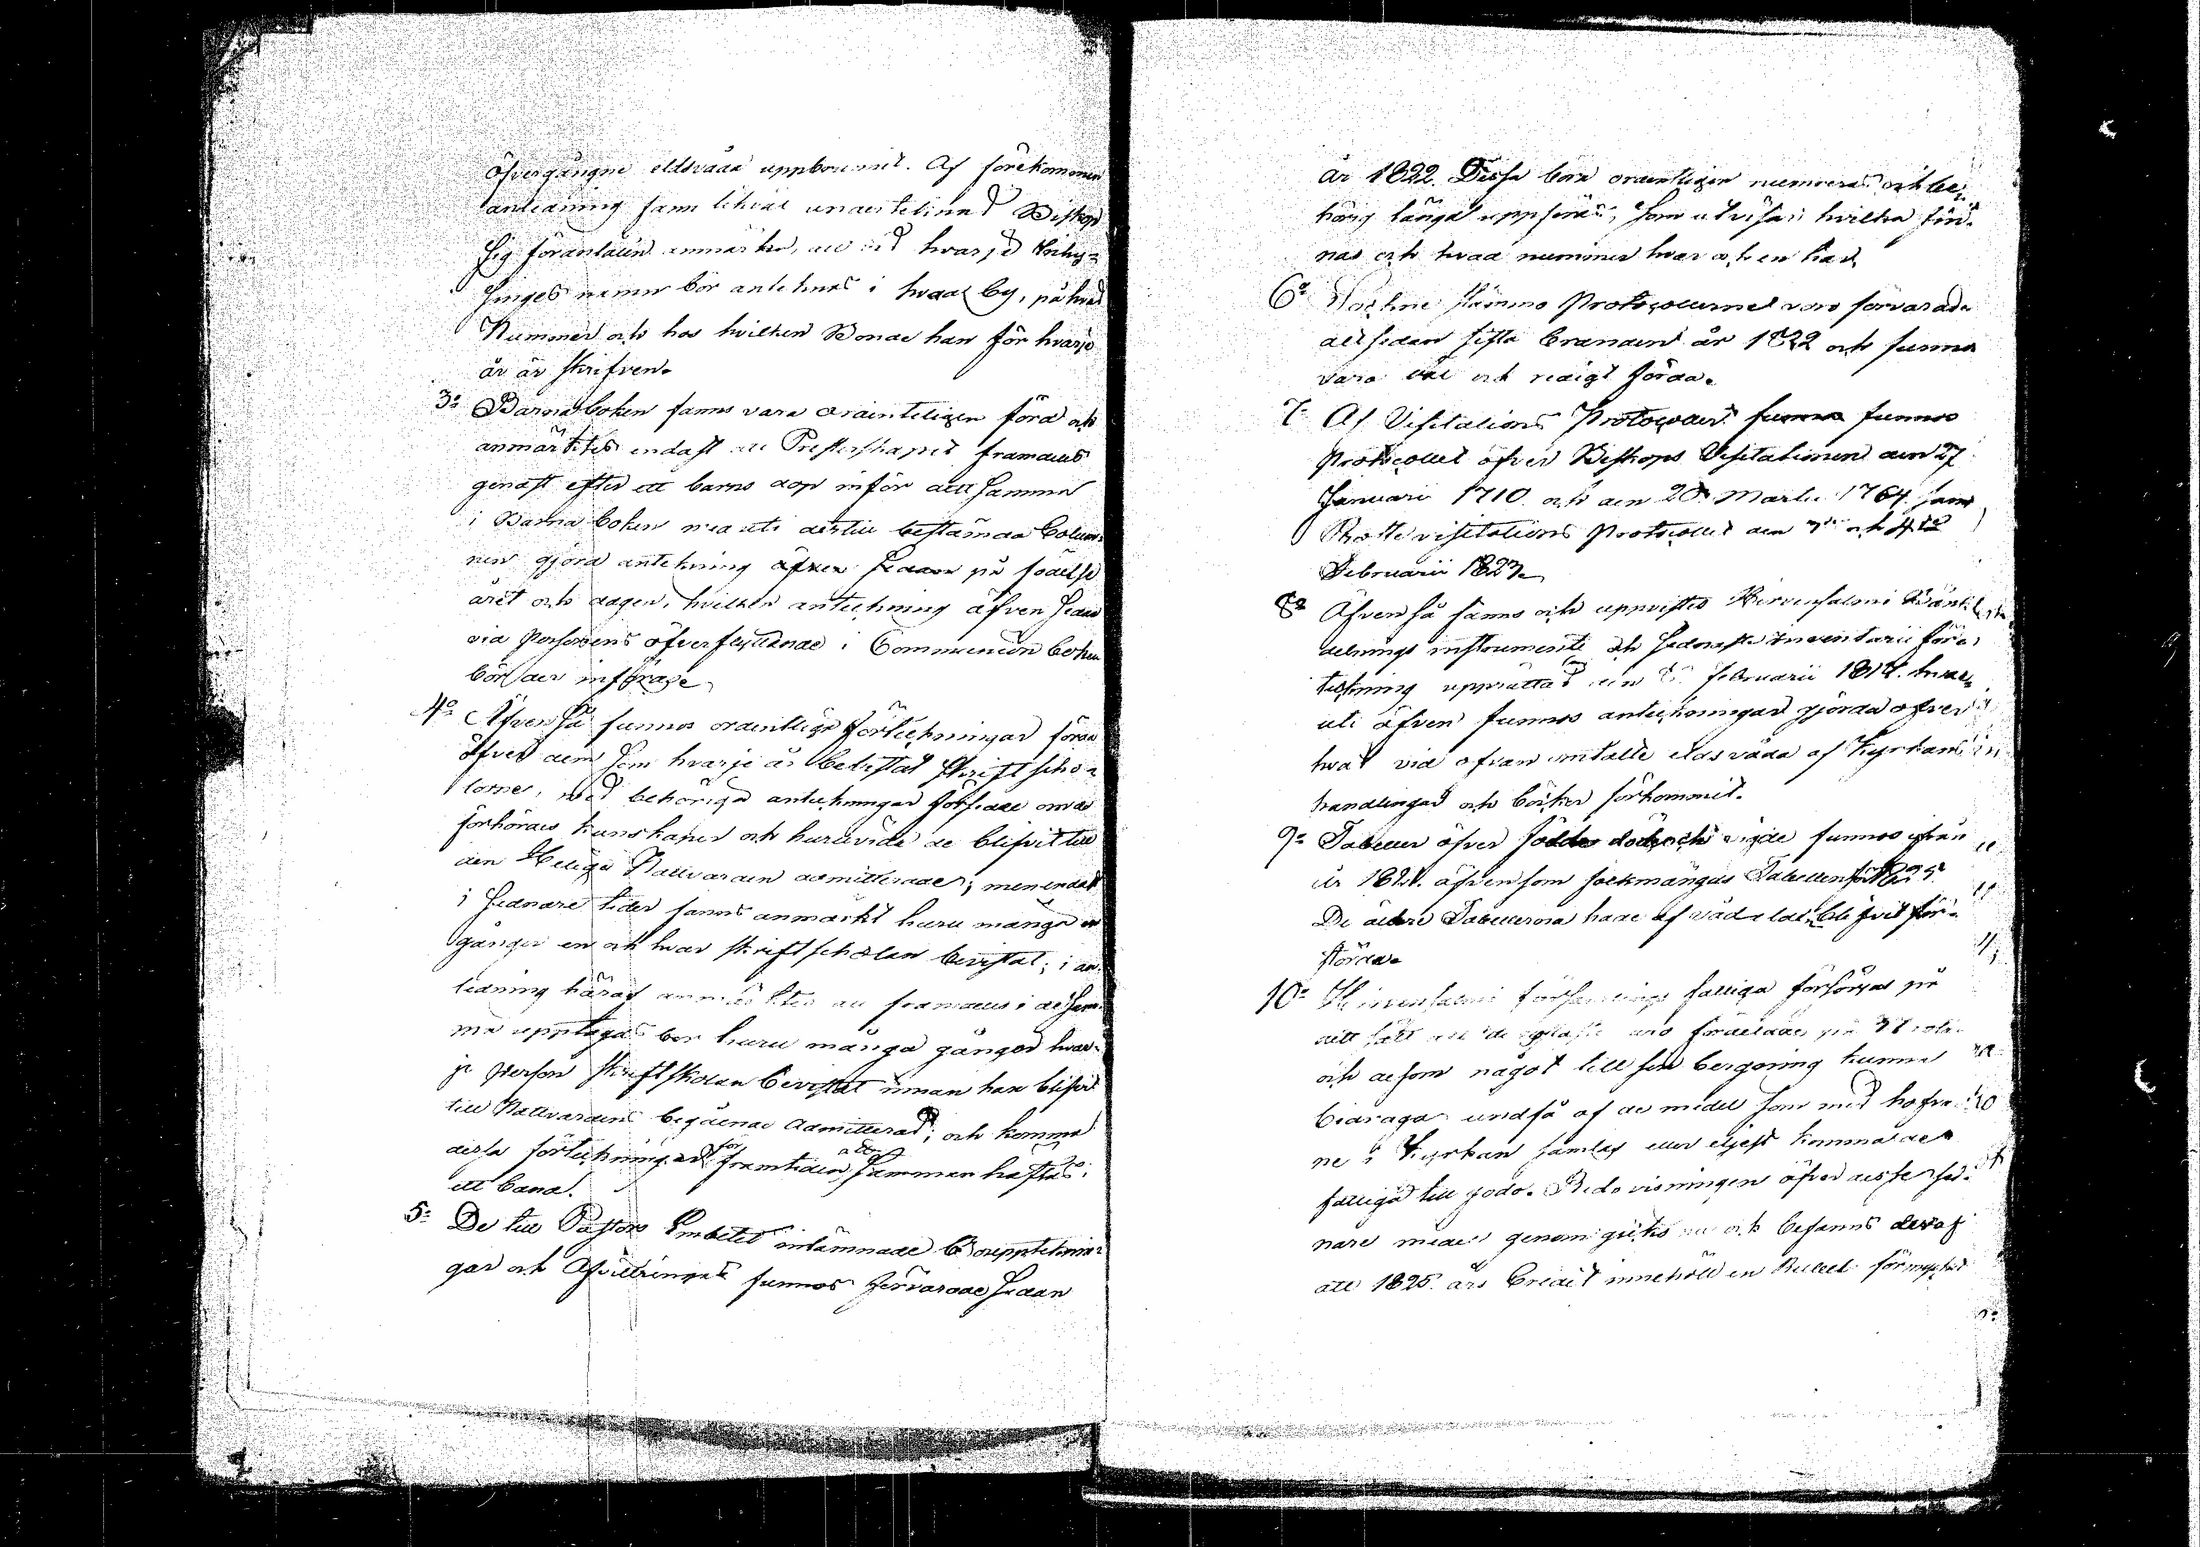 öfvergångne eldsvåda uppbrunnit. Af förekommen
anledning fann likväl undertecknad Biskop
sig föranlåten anmärka, att vid hvarje Inhy-
singes namn bör antecknas i hvad by, på hvad
Nummer och hos hvilken Bonde han för hvarje
år är skrifven.
3o Barnaboken fanns vara ordenteligen förd och
anmärktes endast att Presterskapet framdeles
genast efter ett barns dop inför dett samma
i Barna boken med uti dertill bestämda Colum-
nen gjord anteckning äfven sedan på födelse
året och dagen, hvilken anteckning äfven sedan
vid personens öfverflyttande i Communion boken
bör der införas.
4o Äfven så funnos ordentliga förteckningar förda
öfver dem som hvarje år bevistat Skriftscho-
lorne, med behöriga anteckningar försedde om de
förhördes kunskaper och huruvida de blifvit till
den Heliga Nattvarden admitterade; men endast
i sednare tider fanns anmärkt huru många
gånger en och hvar skriftscholan bevistat; i an-
ledning häraf anmärktes att framdeles i desam-
ma upptagas bör huru många gånger hvar-
je person skriftskolan bevistat innan han blifvit
till Nattvardens begående admitterad; och komma
dessa förteckningar för framtiden att sammanhäftas i
ett band.
5o De till Pastors Embetet inlämnade Boupptecknin-
gar och Afvittringar funnos förvarade sedan
år 1822. Dessa böra ordentligen numreras och be-
hörig längd uppföras, som utvisar hvilka fin-
nas och hvad nummer hvar och en har.
6o Sockne stämmo Protocollerne voro förvarade
allt sedan sista branden år 1822 och funnos
vara väl och redigt förda.
7o Af Visitations Protocoller funnos funnos
Protocollet öfver Biskops Visitationen den 27
Januari 1710 och den 20 Martii 1764 samt
Probstevisitations Protocollet den 3die och 4de
Februarii 1823.
8o Äfven så fanns och uppvistes Hirvensalmi
delnings instrumentet och sednaste Inventarii för-
teckning upprättad den Februarii 1818. hvar-
uti äfven funnos anteckningar gjorda öfver
hvad vid ofvan omtalte eldsvåda af Kyrkans
handlingar och böcker förkommit.
9o Tabeller öfver födde döde och vigde funnos ifrån
år 1821. äfvensom folkmängds Tabellen för 1825
De äldre Tabellerna hade af vådeld blifvit för-
störda.
10o Hirvensalmi församlings fattiga försörjas på
sätt att de äro fördelade på Rotar
och de som något till sin bergning kunna
bidraga undfå af de medel som med håfvar-
ne i Kyrkan samlas eller eljest komma de
fattiga till godo. Redovisningen öfver desse sed-
nare medel genomgicks nu och befanns deraf
att 1825 års Credit innehöll en Rubel för mycket